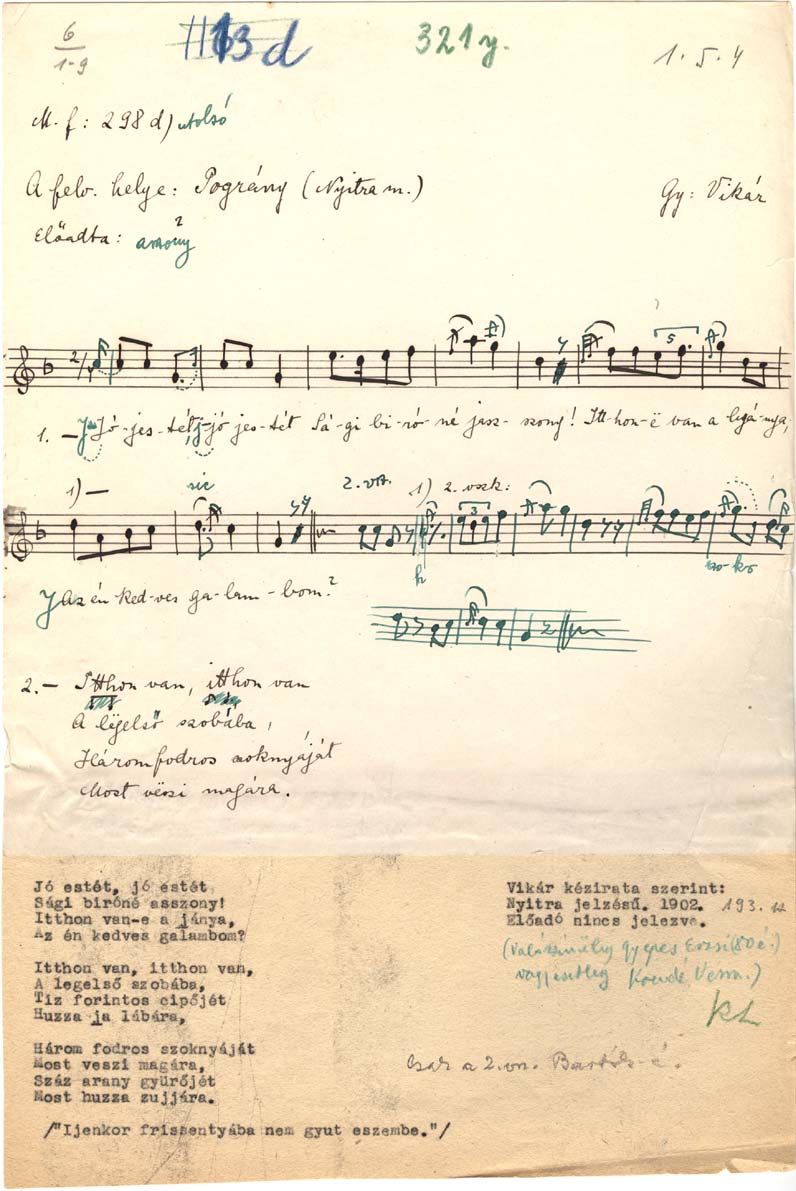 6
1-9
113 d
321 y.
1. 5. 4
M. f: 298 d) utolsó
A felv. helye: Pográny (Nyitra m.)
Gy: Vikár
Előadta: asszony ?
2/4
5
1. — Jó-jes-tét, j-jó jes-tét Sá-gi bi-ró-né jasz-szony! Itt-hon-ë van a lyá-nya,
1) —
sic
2. vsz.
1) 2. vszk:
3
h
szo-kn
J Az én ked-ves ga-lam-bom?
2. — Itthon van, itthon van
A lëjelső szobába,
Három fodros szoknyáját
Most vëszi magára.
Jó estét, jó estét
Sági biróné asszony!
Itthon van-e a jánya,
Az én kedves galambom?
Itthon van, itthon van,
A legelső szobába,
Tiz forintos cipőjét
Huzza ja lábára,
Három fodros szoknyáját
Most veszi magára,
Száz arany gyürőjét
Most huzza zujjára.
/"Ijenkor frissentyába nem gyut eszembe."/
Vikár kézirata szerint:
Nyitra jelzésű. 1902. 193.
Előadó nincs jelezve.
(Valószinűleg Gyepes Erzsi (80 é.)
vagy esetleg
KL
Csak a 2. vsz. Bartók-é.